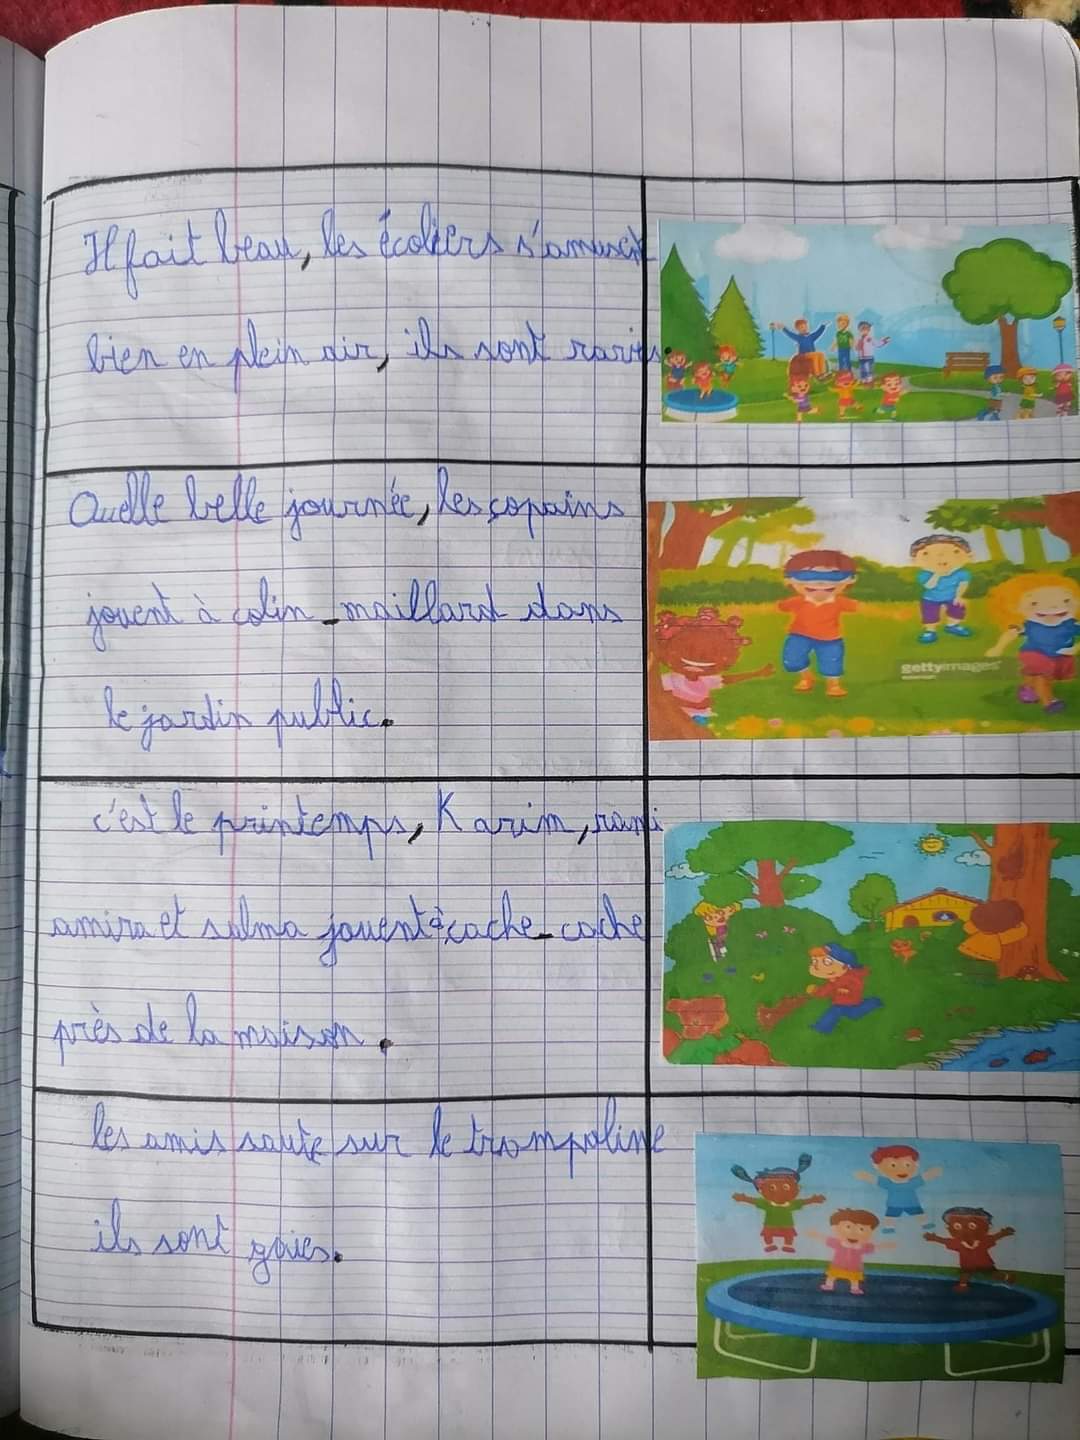 Il fait beau, les écoliers s'amusent
bien en plein air, ils sont ravis
Quelle belle journée, les copains
jouent à colin-maillard dans
le jardin public.
gettyimages
c'est le printemps, Karim, rami
amira et salma jouent à cache-cache
près de la maison.
les amis saute sur le trompoline
ils sont gaies.